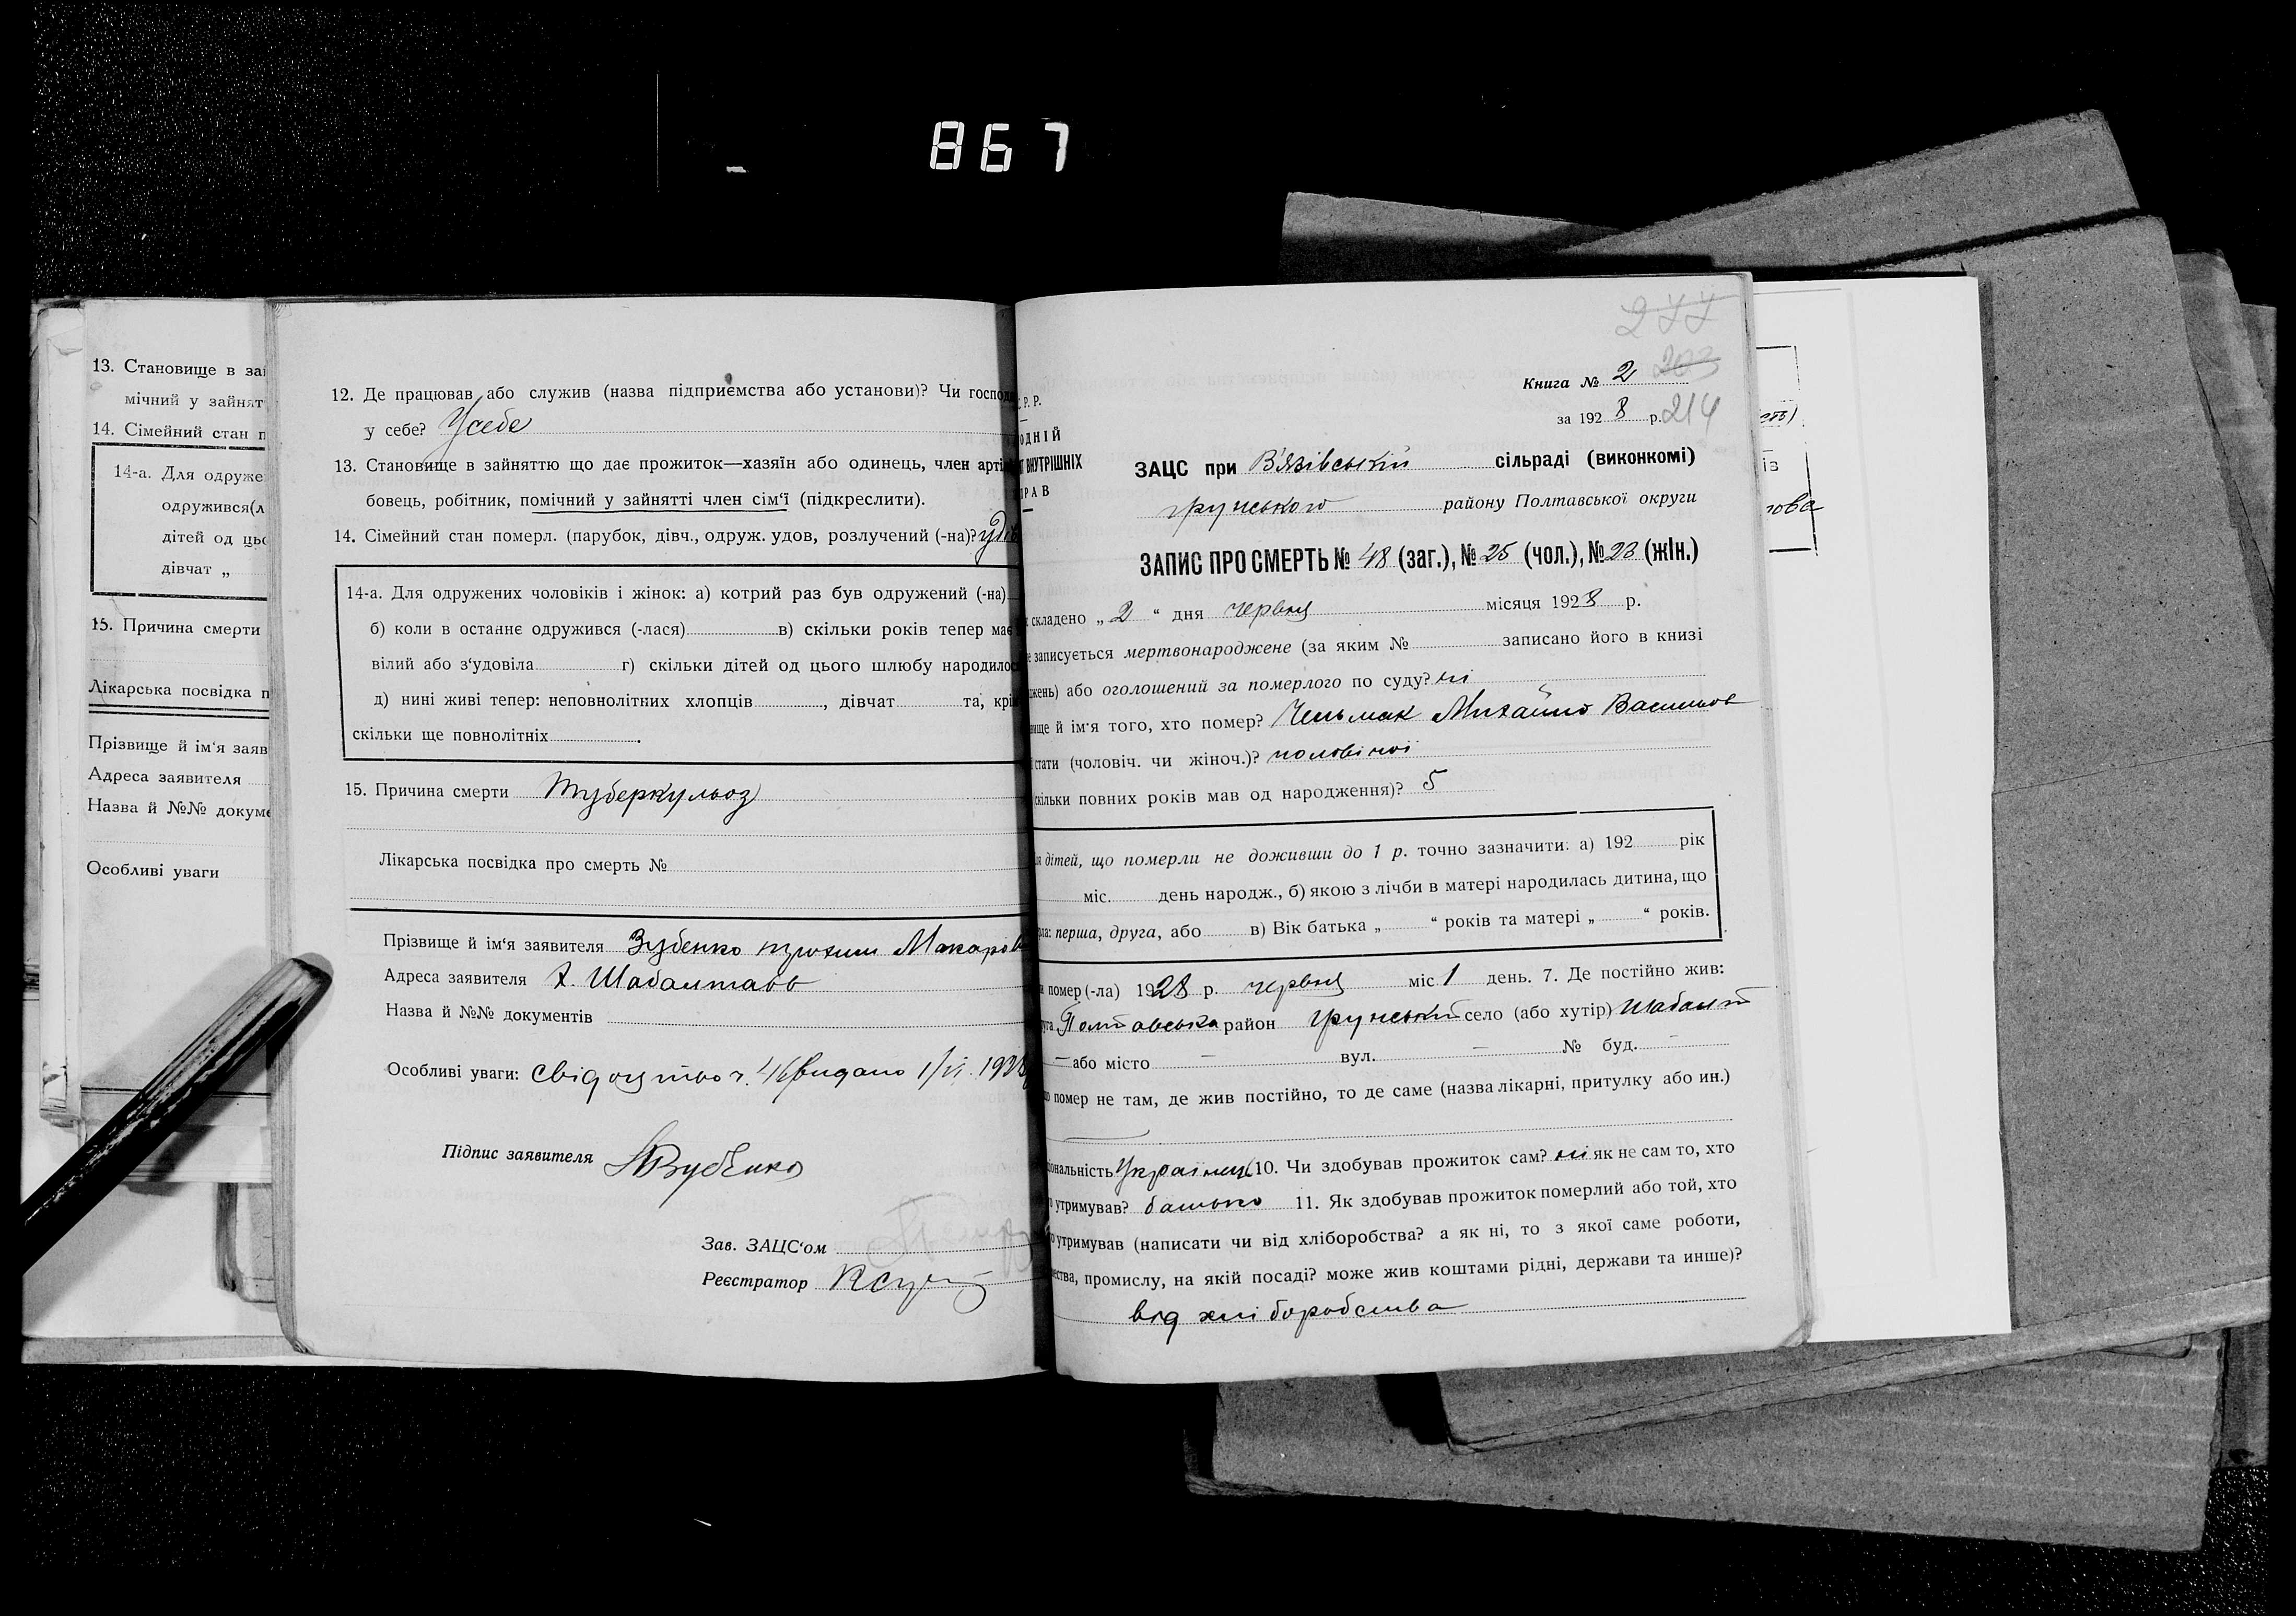 867
13. Становище в зай
мічний у зайнят
14. Сімейний стан п
14-а. Для одруже
одружився(л
дітей од цьо
дівчат „
15. Причина смерти
Лікарська посвідка п
Прізвище й ім'я заяв
Адреса заявителя
Назва й №№ докуме
Особливі уваги
12. Де працював або служив (назва підприємства або установи)? Чи господ
у себе? Усебе
13. Становище в зайняттю що дає прожиток—хазяїн або одинець, член арті
бовець, робітник, помічний у зайнятті член сім'ї (підкреслити).
14. Сімейний стан померл. (парубок, дівч., одруж. удов, розлучений (-на)? удів
14-а. Для одружених чоловіків і жінок: а) котрий раз був одружений (-на)
б) коли в останнє одружився (-лася) в) скільки років тепер має
вілий або з'удовіла г) скільки дітей од цього шлюбу народилос
д) нині живі тепер: неповнолітних хлопців , дівчат та, крі
скільки ще повнолітніх .
15. Причина смерти Туберкульоз
Лікарська посвідка про смерть №
Прізвище й ім'я заявителя Зубенко Макаров
Адреса заявителя х. Шабалтаєв
Назва й №№ документів
Особливі уваги: Свідоцтво ч. 46 видано 1/VI. 1928
Підпис заявителя Зубенко
Зав. ЗАЦС'ом
Реєстратор
277
203
Книга № 2
за 192 8 р. 214
С.Р.Р.
ОДНІЙ
Т ВНУТРІШНІХ
ПРАВ
ЗАЦС при Вязівській сільраді (виконкомі)
грунського району Полтавської округи
ЗАПИС ПРО СМЕРТЬ № 48 (заг.), № 25 (чол.), № 23 (жін.)
складено „ 2 “ дня червня місяця 192 8 р.
записується мертвонароджене (за яким № записано його в книзі
жень) або оголошений за померлого по суду? ні
вище й ім'я того, хто помер? Чельмак Михайло Васильов
стати (чоловіч. чи жіноч.)? чоловічої
скільки повних років мав од народження)? 5
дітей, що померли не доживши до 1 р. точно зазначити: а) 192 рік
міс. день народж., б) якою з лічби в матері народилась дитина, що
рла: перша, друга, або в) Вік батька „ “ років та матері „ “ років.
помер (-ла) 1928 р. червня міс 1 день. 7. Де постійно жив:
уга Полтавська район Грунський село (або хутір) Шабалт
— або місто — вул. — № буд. —
помер не там, де жив постійно, то де саме (назва лікарні, притулку або ин.)
ціональність Українець 10. Чи здобував прожиток сам? ні як не сам то, хто
утримував? батько 11. Як здобував прожиток померлий або той, хто
утримував (написати чи від хліборобства? а як ні, то з якої саме роботи,
ества, промислу, на якій посаді? може жив коштами рідні, держави та инше)?
від хліборобства